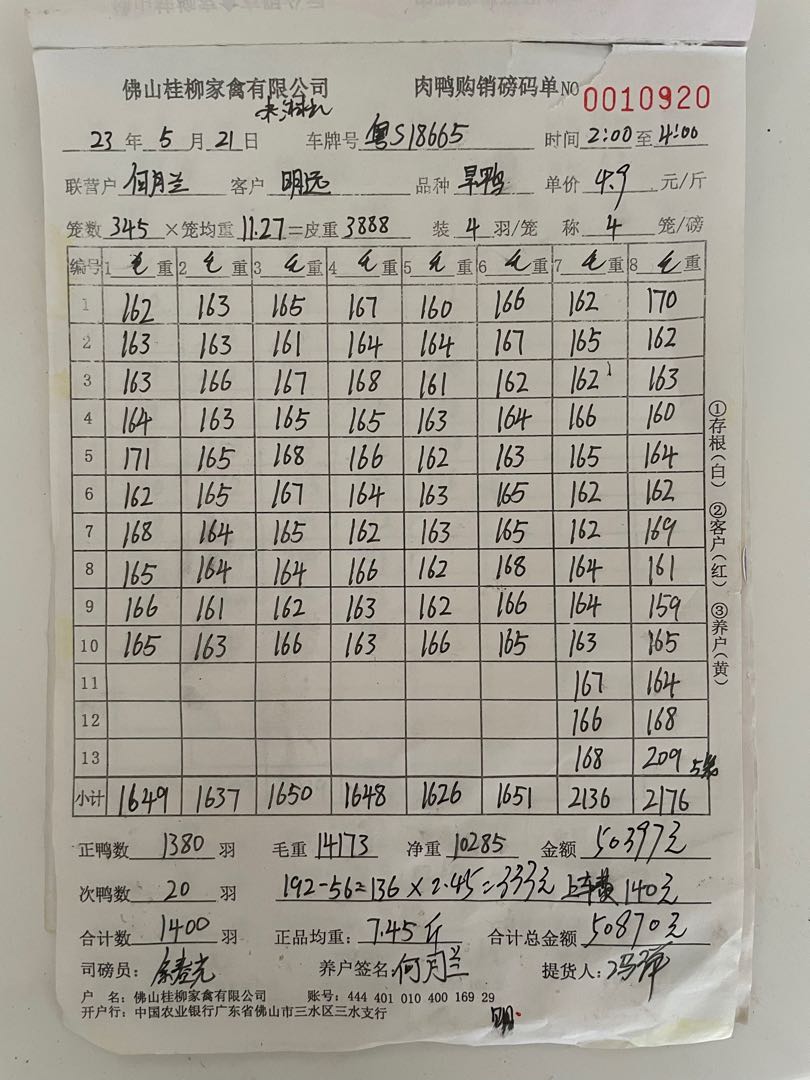 佛山桂柳家禽有限公司 肉鸭购销磅码单 NO 0010920
23 年 5 月 21 日 车牌号 粤S18665 时间 2:00 至 4:00
联营户 何月兰 客户 明远 品种 旱鸭 单价 4.9 元/斤
笼数 345 ×笼均重 11.27 =皮重 3888 装 4 羽/笼 称 4 笼/磅
编号 1 毛 重 2 毛 重 3 毛 重 4 毛 重 5 毛 重 6 毛 重 7 毛 重 8 毛 重
1 162 163 165 167 160 166 162 170
2 163 163 161 164 164 167 165 162
3 163 166 167 168 161 162 162 163
4 164 163 165 165 163 164 166 160
5 171 165 168 166 162 163 165 164
6 162 165 167 164 163 165 162 162
7 168 164 165 162 163 165 162 169
8 165 164 164 166 162 168 164 161
9 166 161 162 163 162 166 164 159
10 165 163 166 163 166 165 163 165
11 167 164
12 166 168
13 168 209 5笼
小计 1649 1637 1650 1648 1626 1651 2136 2176
正鸭数 1380 羽 毛重 14173 净重 10285 金额 50397元
次鸭数 20 羽 192-56=136×2.45=333元 上车费 140元
合计数 1400 羽 正品均重: 7.45斤 合计总金额 50870元
司磅员: 养户签名: 何月兰 提货人: 冯萍
户 名: 佛山桂柳家禽有限公司 账号: 444 401 010 400 169 29
开户行: 中国农业银行广东省佛山市三水区三水支行
①存根(白) ②客户(红) ③养户(黄)